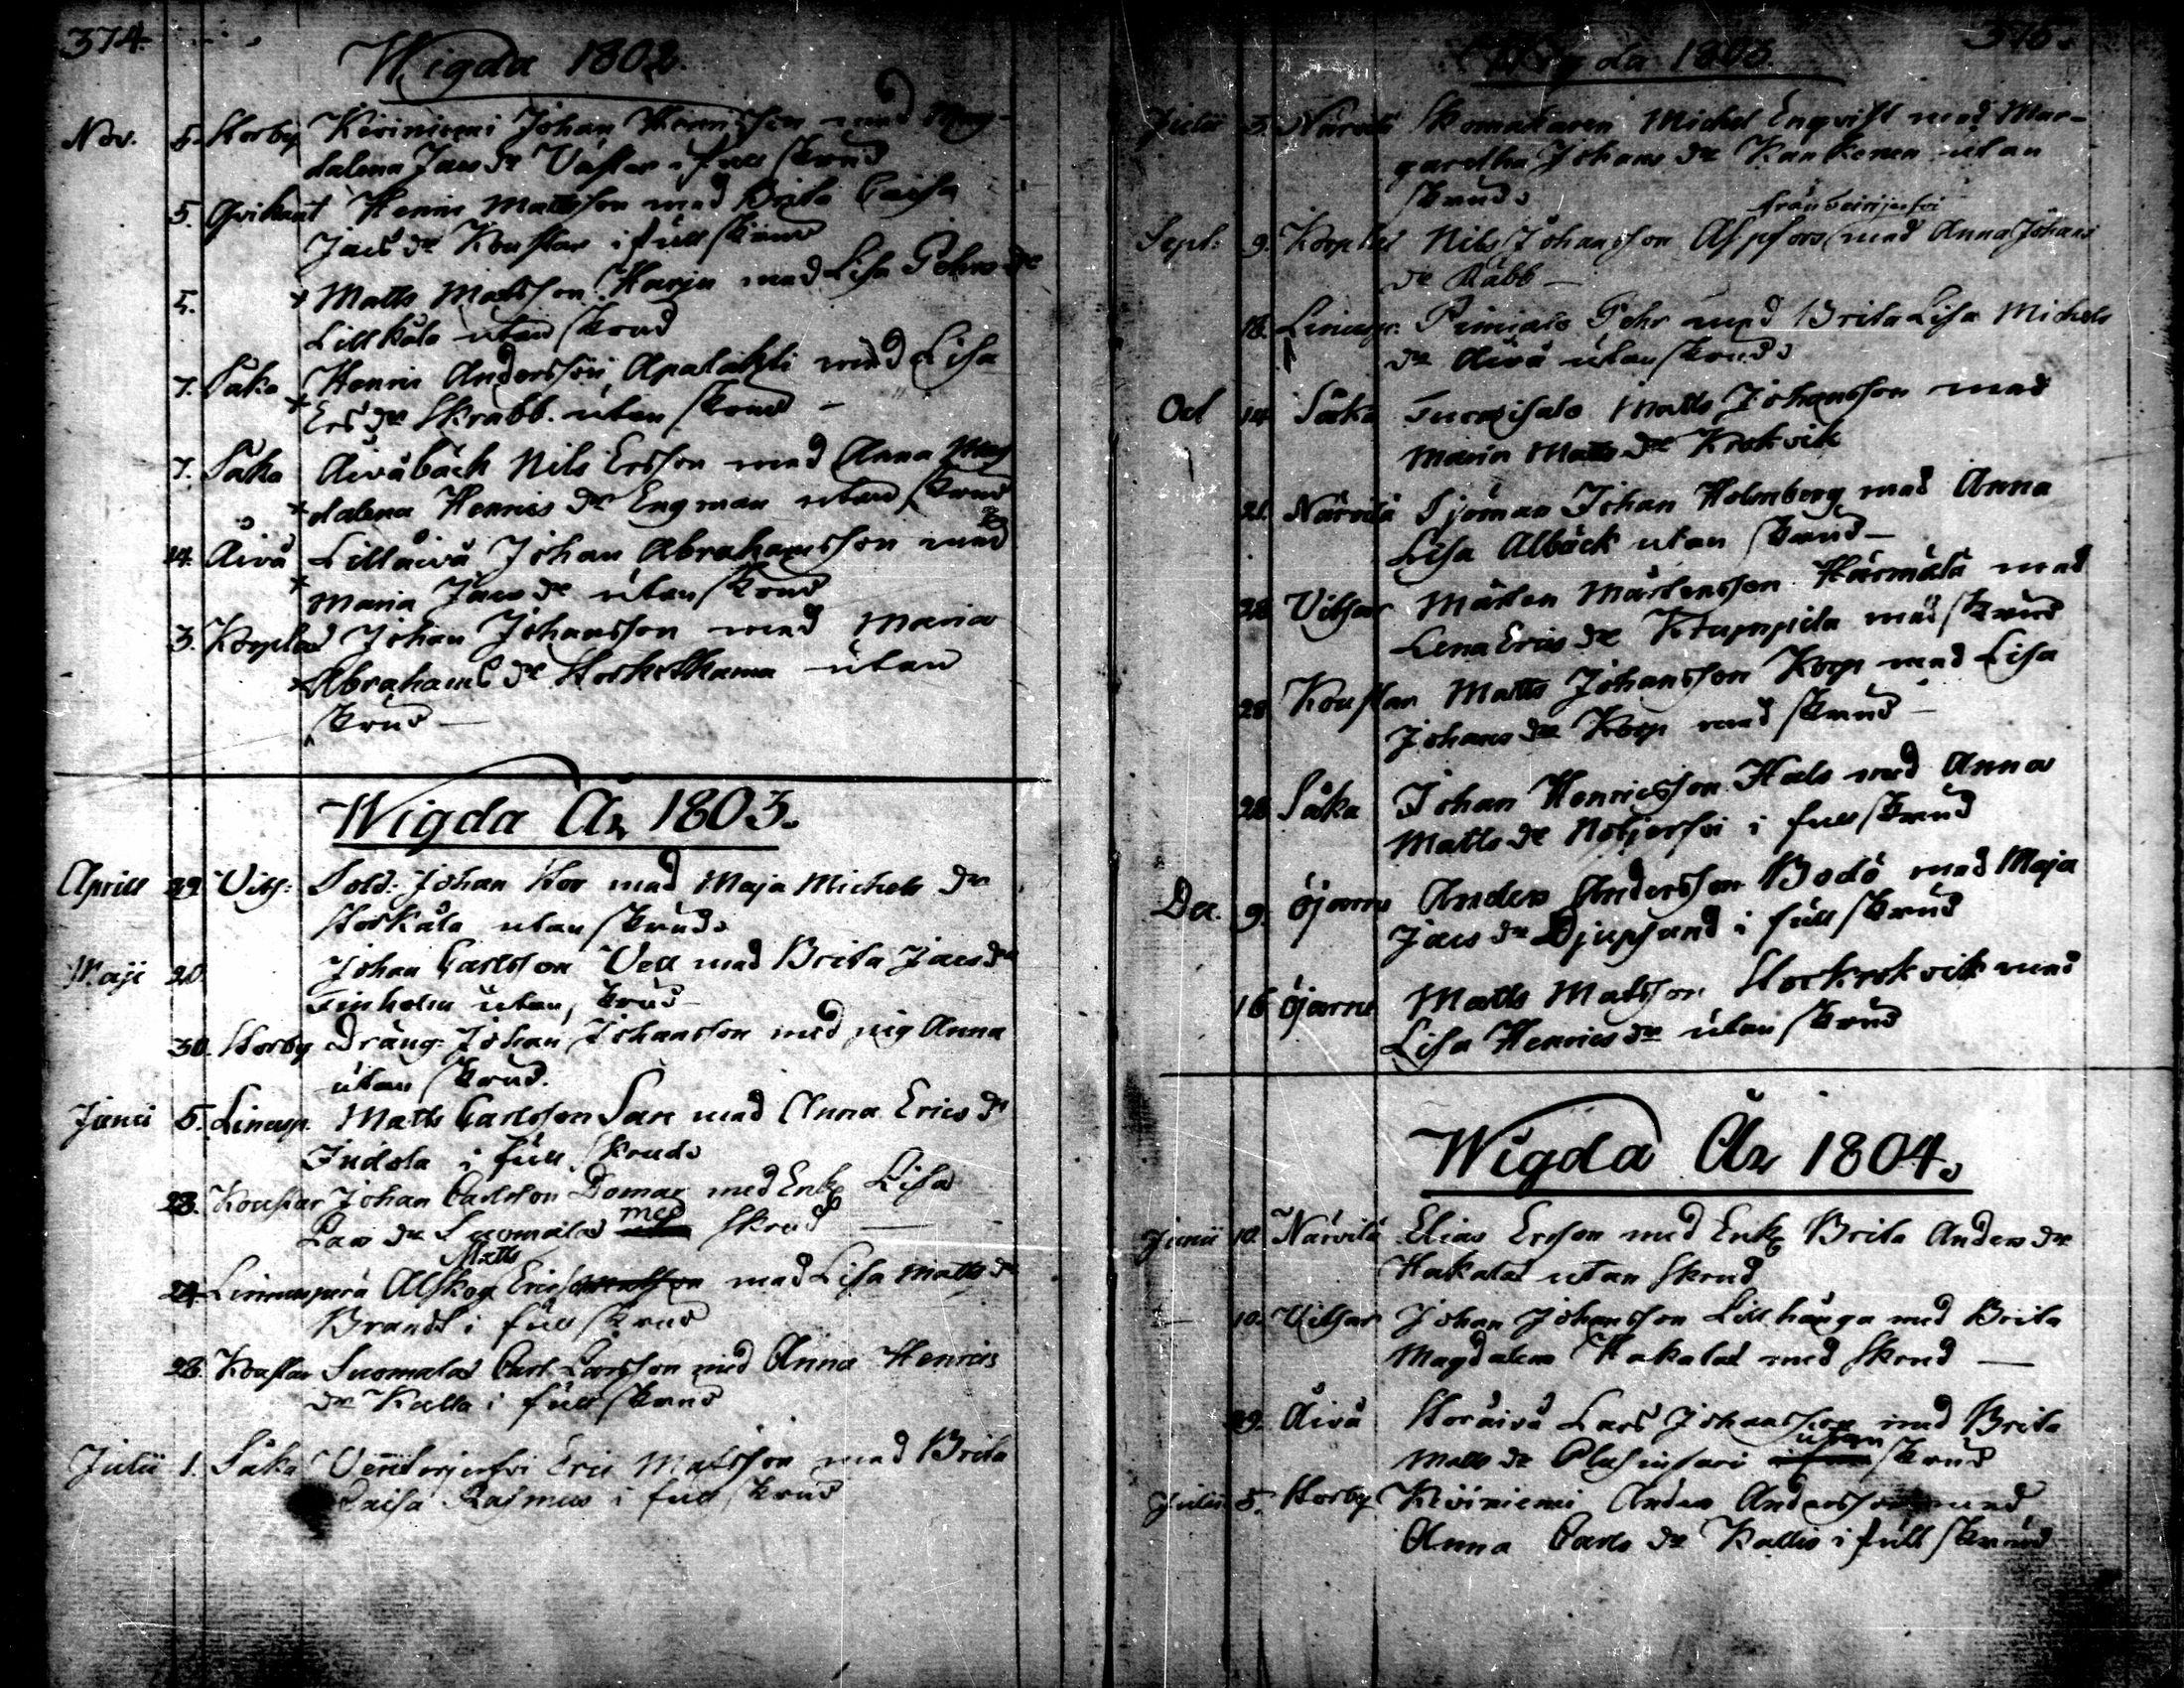 374.
Wigda 1802.
Nov. 5. Storby Kiviniemi Johan Henrisson med Mag-
dalena Jacs dr Västar i full skrud
5. Qvikant Henric Mattsson med Brita Caisa
Jacs dr Koustar i full skrud
5. Matts Matsson Harju med Lisa Pehrs dr
Lillkåla utan skrud
7. Såka Henric Andersson Apalahti med Lisa
Ers dr Skrabb. utan skrud -
7. Såka Aivabäck Nils Ersson med Anna Mag
dalena Henrics dr Engman utan skrud
14. Åivå Lillåivå Johan Abrahamsson med
Maria Jacs dr utan skrud
3. Korplad Johan Johansson med Maria
Abrahams dr utan
skrud -
Wigda År 1803.
Aprill 29. Vits: Sold: Johan Stor med Maja Michels dr
Storkåla utan skrud.
Maji 20. Johan Carlsson Vell med Brita Jacs dr
Finholm utan skrud -
30. Storby Dräng. Johan Johansson med pig Anna
utan skrud.
Junii 5. Linusp. Matts Carlsson Sare med Anna Erics dr
Indola i full skrud.
23. Koustar Johan Carlsson Domar med Enk. Lisa
Lars dr Suomala med skrud -
Matts
24. Linnuspera Alskog Erics med Lisa Matts dr
Brandt i full skrud
28. Koustar Suomala Carl Larsson med Anna Henrics
dr Kalla i full skrud
Julii 1. Såka Ventusjerfvi Eric Matsson med Brita
Caisa Rasmus i full skrud
375.
Wigda 1803.
Julii 3. Närvilä Skomakaren Michel Enqvist med Mar-
garetha Johans dr Kankonen utan
skrud.
från
Sept: 9. Korplad Nils Johansson med Anna Johans
dr Räbb -
18. Linusp. Pehr med Brita Lisa Michels
dr Åivå utan skrud.
Oct 14 Såka Turmisalo Matts Johansson med
Maria Matts dr Krokvik
21. Närvilä Sjöman Johan Holmberg med Anna
Lisa Albäck utan skrud -
28 Vitsar Mårten Mårtensson Härmälä med
Lena Erics dr med skrud
28 Koustar Matts Johansson Korp med Lisa
Johans dr Korp med skrud -
28 Såka Johan Henricsson Hals med Anna
Matts dr i full skrud
Dec. 9. Öjorna Anders Andersson Bodö med Maja
Jacs dr Djupsund i full skrud
16 Öjorna Matts Matsson Storkrokvik med
Lisa Henrics dr utan skrud
Wigda År 1804.
Junii 10. Närvilä Elias Ersson med Enk. Brita Anders dr
Hakala utan skrud
10. Vitsar Johan Johansson Lillhånga med Brita
Magdalena Hakala med skrud -
29. Åivå Storåivå Lars Johansson med Brita
utan
Matts dr skrud
Julii 5. Storby Kiviniemi Anders Andersson med
Anna Carls dr Kallis i full skrud